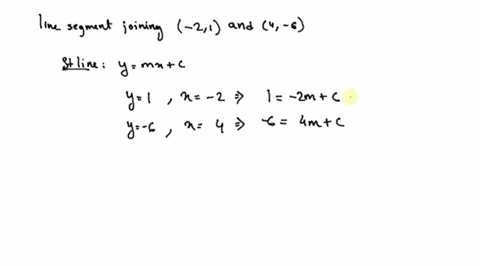 line segment joining (-2,1) and (4,-6)
St line: y=mx+c
y=1 , x=-2 ⇒ 1=-2m+c
y=-6 , x= 4 ⇒ -6= 4m+c